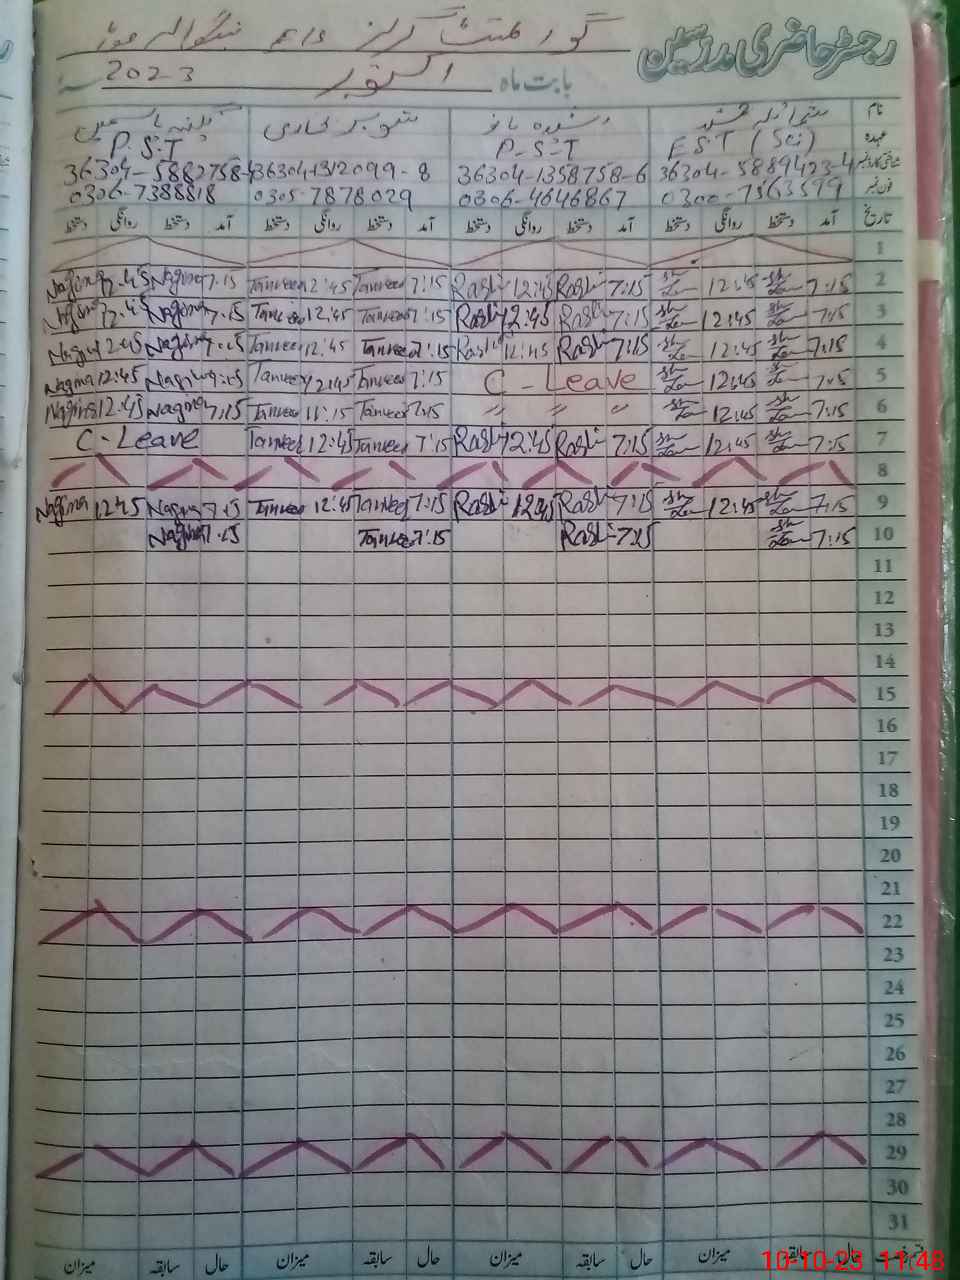 رجسٹر حاضری مدرسین
گورنمنٹ گرلز
بابت ماہ اکتوبر 2023
نام
عہدہ E.S.T (Sci) P.S.T P.S.T
شناختی کارڈ نمبر 36304-5889423-4 36304-1358758-6 36304-1312099-8 36304-5882758-4
فون نمبر 0306-4646867 0305-7878029 0306-7388818
تاریخ آمد دستخط روانگی دستخط آمد دستخط روانگی دستخط آمد دستخط روانگی دستخط آمد دستخط روانگی دستخط
1
Nagina 12.45 Nagina 7.15 Tanveer 12:45 Tanveer 7:15 Rashi 12:45 Rashi 7:15 12:45 7:15 2
Nagina 12.45 Nagina 7.15 Tanveer 12:45 Tanveer 7:15 Rashi 12:45 Rashi 7:15 12:45 7:15 3
Nagina 12:45 Nagina 7:15 Tanveer 12:45 Tanveer 7:15 Rashi 12:45 Rashi 7:15 12:45 7:15 4
Nagina 12:45 Nagina 7:15 Tanveer 12:45 Tanveer 7:15 C - Leave 12:45 7:15 5
Nagina 12:45 Nagina 7:15 Tanveer 11:15 Tanveer 7:15 〃 〃 〃 12:45 7:15 6
C - Leave Tanveer 12:45 Tanveer 7:15 Rashi 12:45 Rashi 7:15 12:45 7:15 7
8
Nagina 12:45 Nagina 7:15 Tanveer 12:45 Tanveer 7:15 Rashi 12:45 Rashi 7:15 12:45 7:15 9
Nagina 7:15 Tanveer 7:15 Rashi 7:15 7:15 10
11
12
13
14
15
16
17
18
19
20
21
22
23
24
25
26
27
28
29
30
31
حال سابقہ میزان حال سابقہ میزان حال سابقہ میزان حال سابقہ میزان
10-10-23 11:48